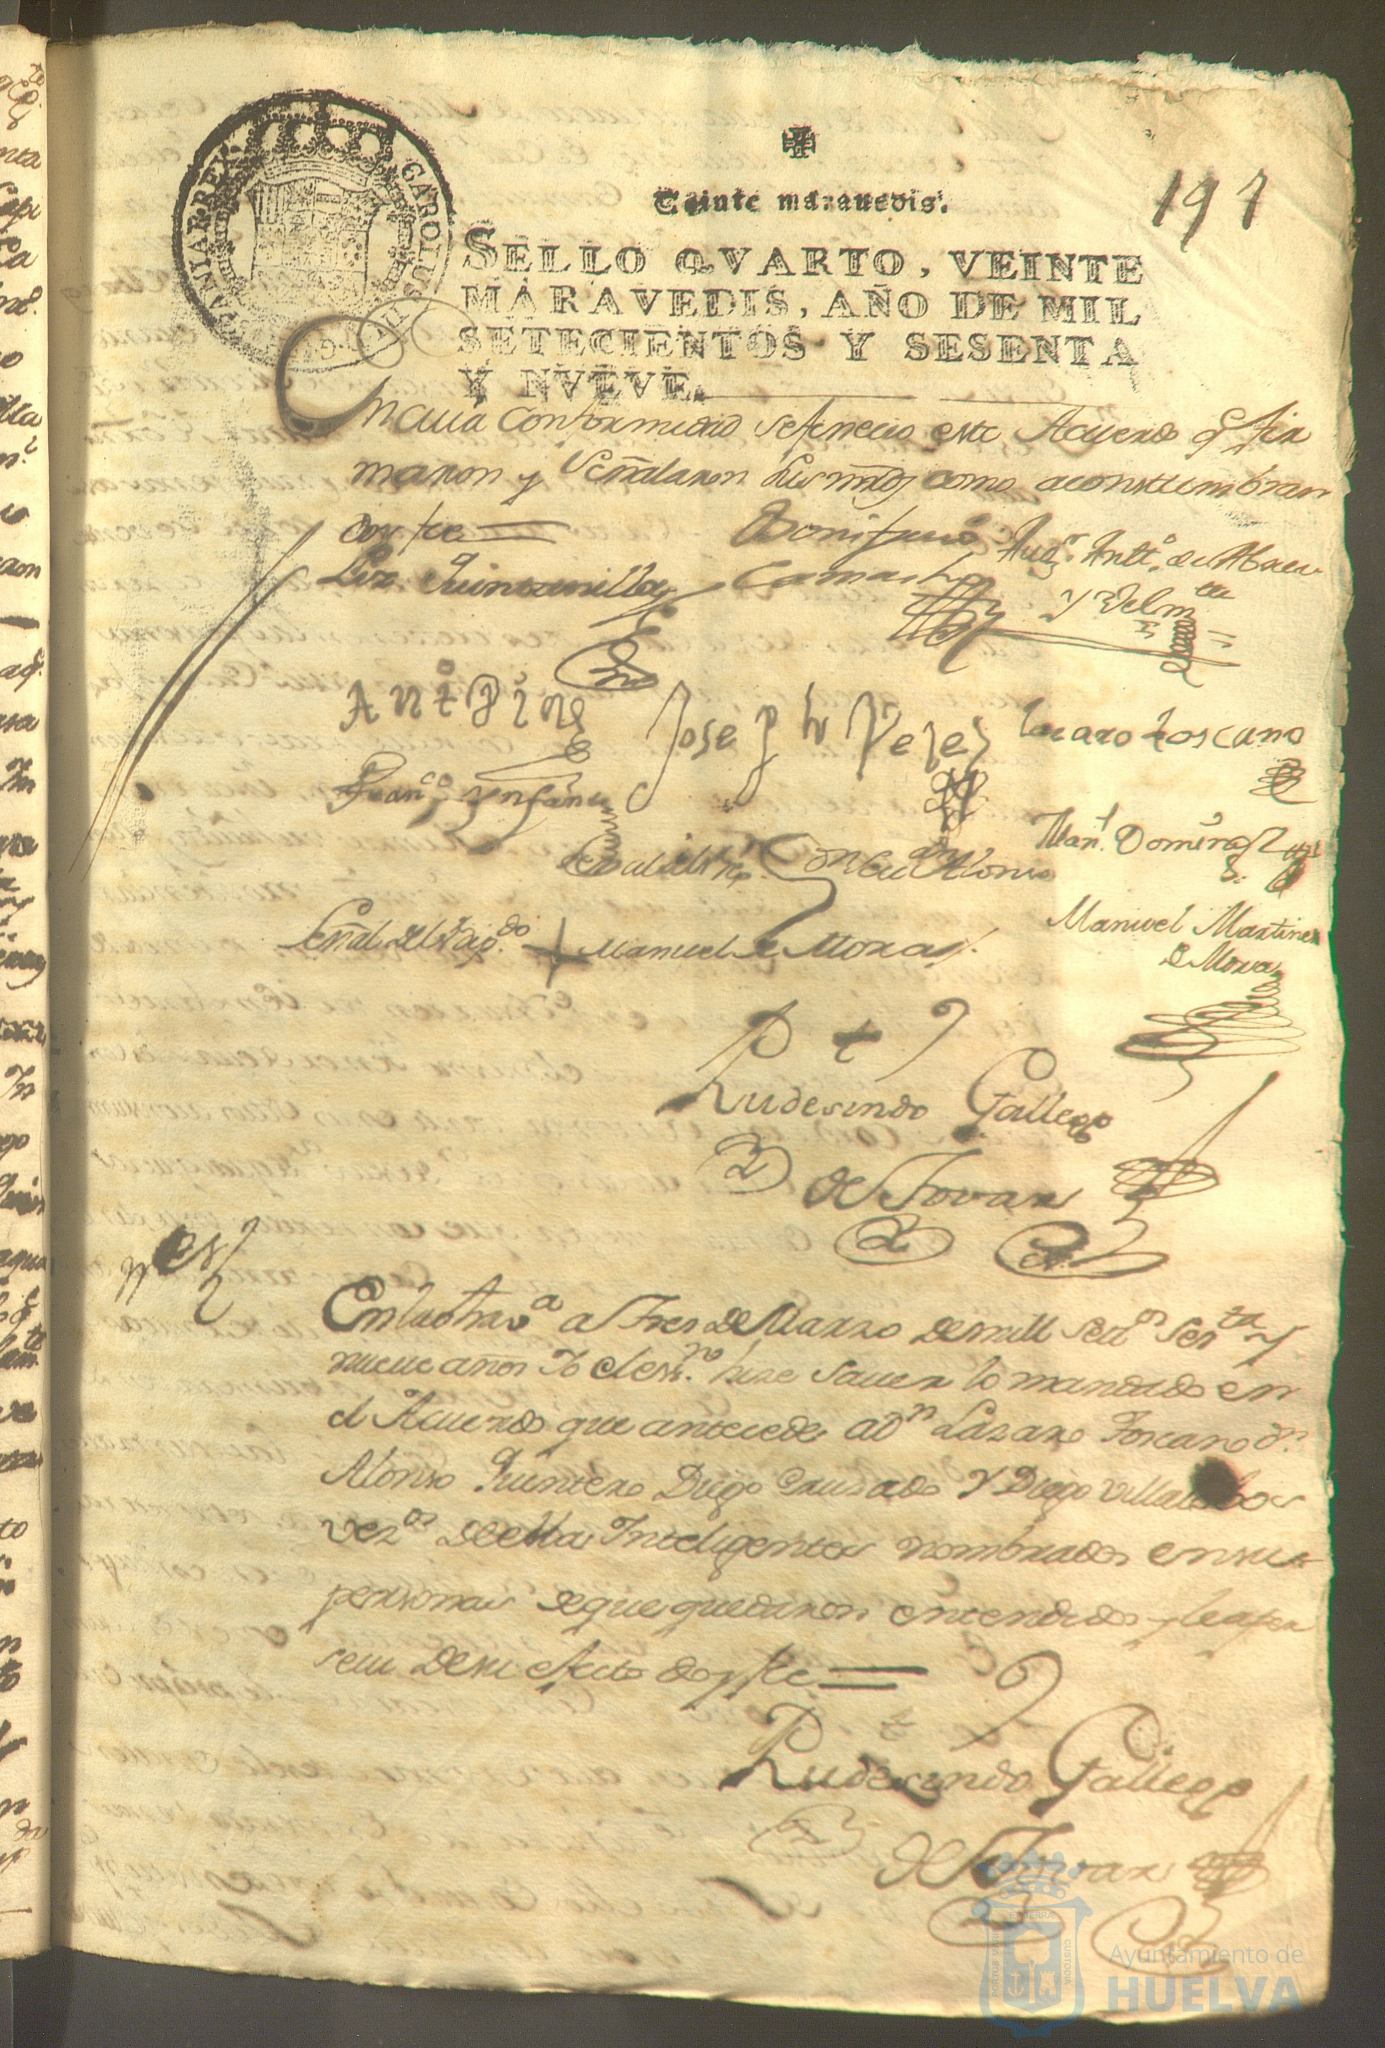 197
Veinte maravedis.
SELLO QVARTO, VEINTE
MARAVEDIS, AÑO DE MIL
SETECIENTOS Y SESENTA
Y NVEVE.
CAROLUS III D G HISPANIAR REX
En cuia conformidad se fenecio este Acuerdo q̃ fir
maron y señalaron sus mrds como acostumbran
doy fee
Liz. Quintanilla
Bonifacio
Camacho
Augn. Antto. de Abreu
y
Antto Pine
Joseph Velez
Lazaro toscano
Franco Ynfante
Manl. Doming
Señal del Rexr.
Alonso
Señal del Dipdo + Manuel de Mora
Manuel Martinez
de Mora
Rudesindo Gallego
de Tovar
En la otra va a Tres de Marzo de mill setes sesta y
nueue años Yo el esno. hize sauer lo mandado en
el Acuerdo que antecede a Dn Lazaro Toscano Dn
Alonso Quintero Diego Cruzado Y Diego Villalobos
vezos de ella Inteligentes nombrados en sus
personas de que quedaron entendidos y
de su efecto doy fee
Rudesindo Gallego
de Tovar
Ayuntamiento de
HUELVA